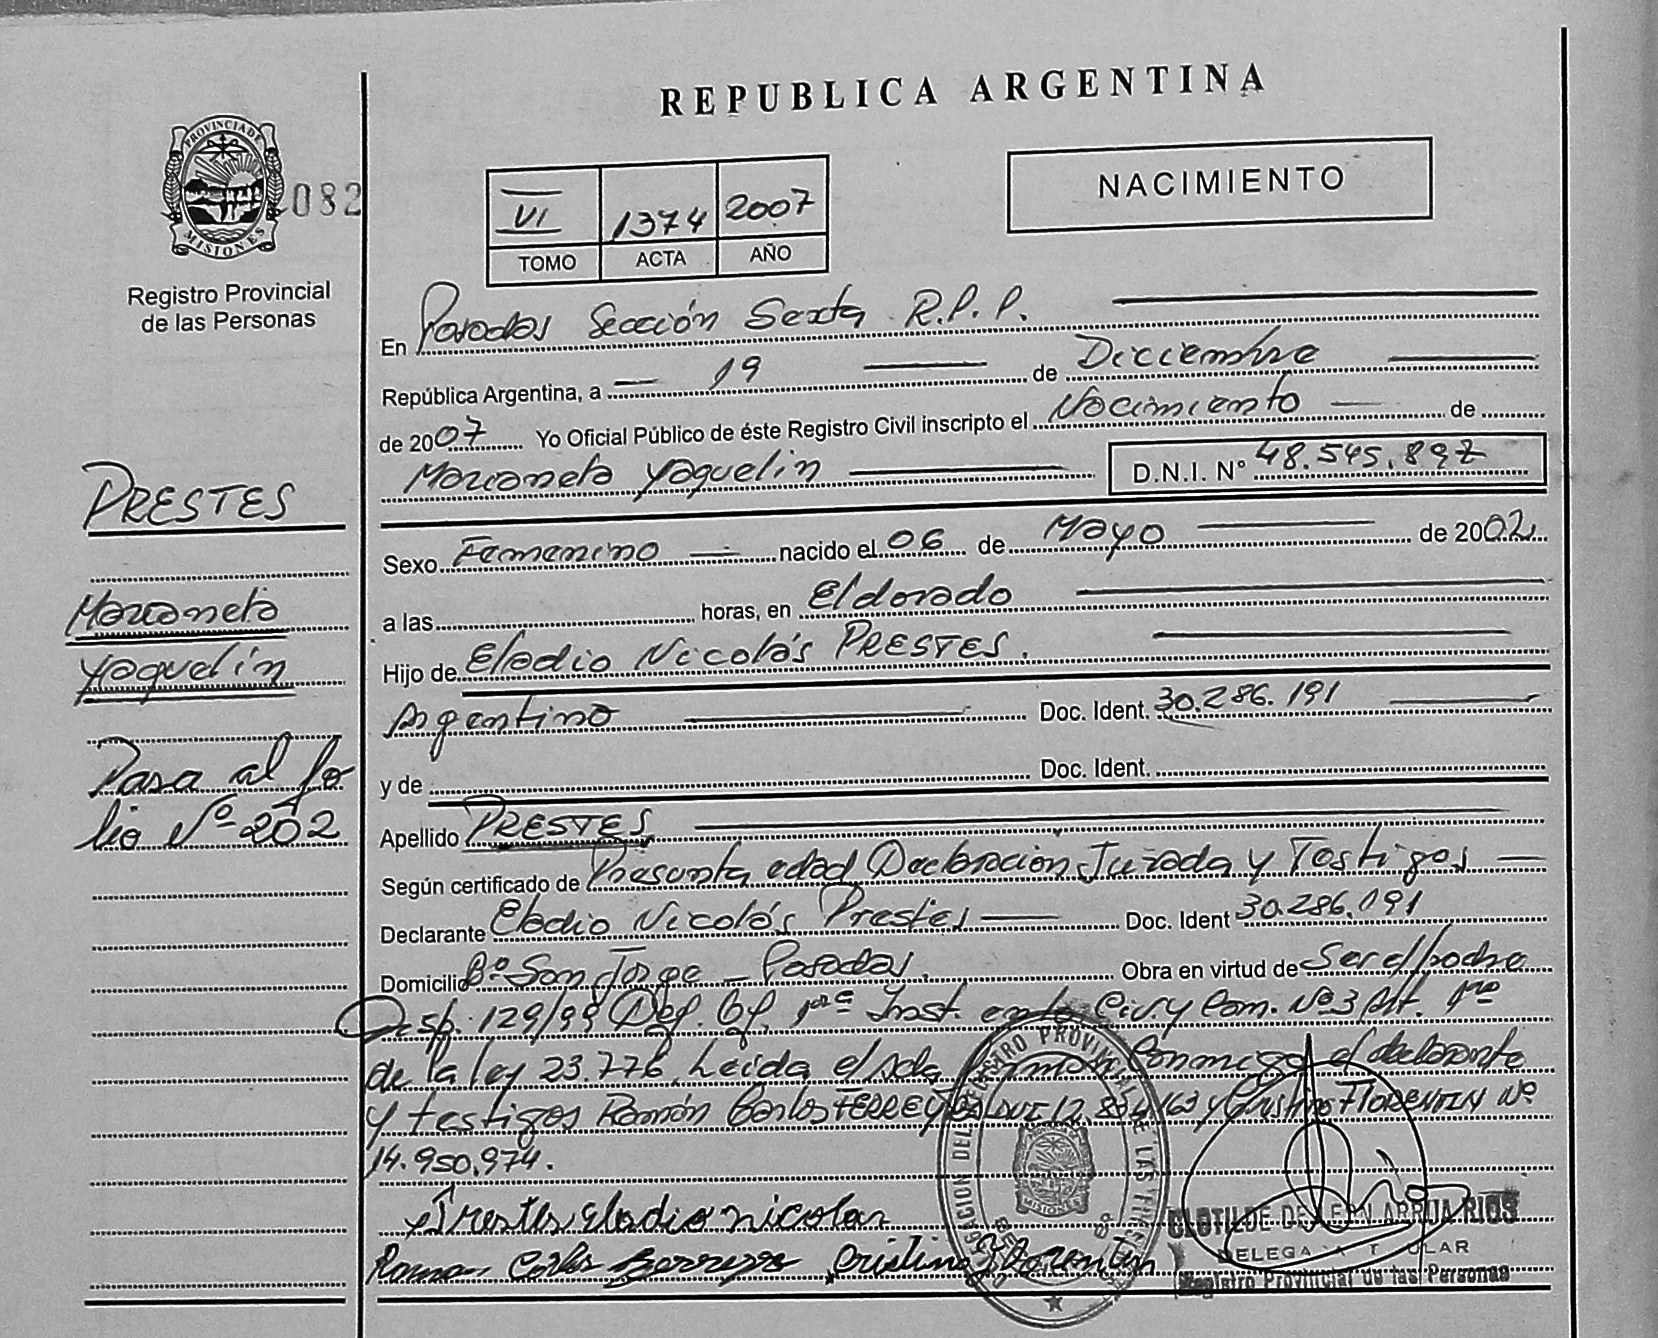 REPUBLICA ARGENTINA
PROVINCIA DE
MISIONES
082
Registro Provincial
de las Personas
VI 1374 2007
TOMO ACTA AÑO
NACIMIENTO
En Posadas Sección Sexta R.P.P.
República Argentina, a 19 de Diciembre
de 2007 Yo Oficial Público de éste Registro Civil inscripto el Nacimiento de
Marianela Yaquelin D.N.I. N° 48.545.897
PRESTES
Marianela
Yaquelin
Pasa al fo
lio Nº 202
Sexo Femenino nacido el 06 de Mayo de 2002
a las horas, en Eldorado
Hijo de Eladio Nicolás PRESTES.
Argentino Doc. Ident. 30.286.191
y de Doc. Ident.
Apellido PRESTES
Según certificado de Presunta edad Declaración Jurada y Testigos
Declarante Eladio Nicolás Prestes Doc. Ident 30.286.191
Domicilio Bº San Jorge - Posadas. Obra en virtud de Ser el padre
Disp. 129/99 Def. Of. 1ra Inst. en lo Civ. y Com. Nº 3 Art. 1ro
de la ley 23.776. Leida el acta firman conmigo el declarante
y testigos Ramón Carlos FERREYRA DNI 12.85 163 y Cristino FLORENTIN Nº
14.950.974.
Prestes Eladio nicolas
Ramon Carlos Ferreyra Cristino Florentin
CLOTILDE DE LEON ARRUA RIOS
DELEGADA TITULAR
Registro Provincial de las Personas